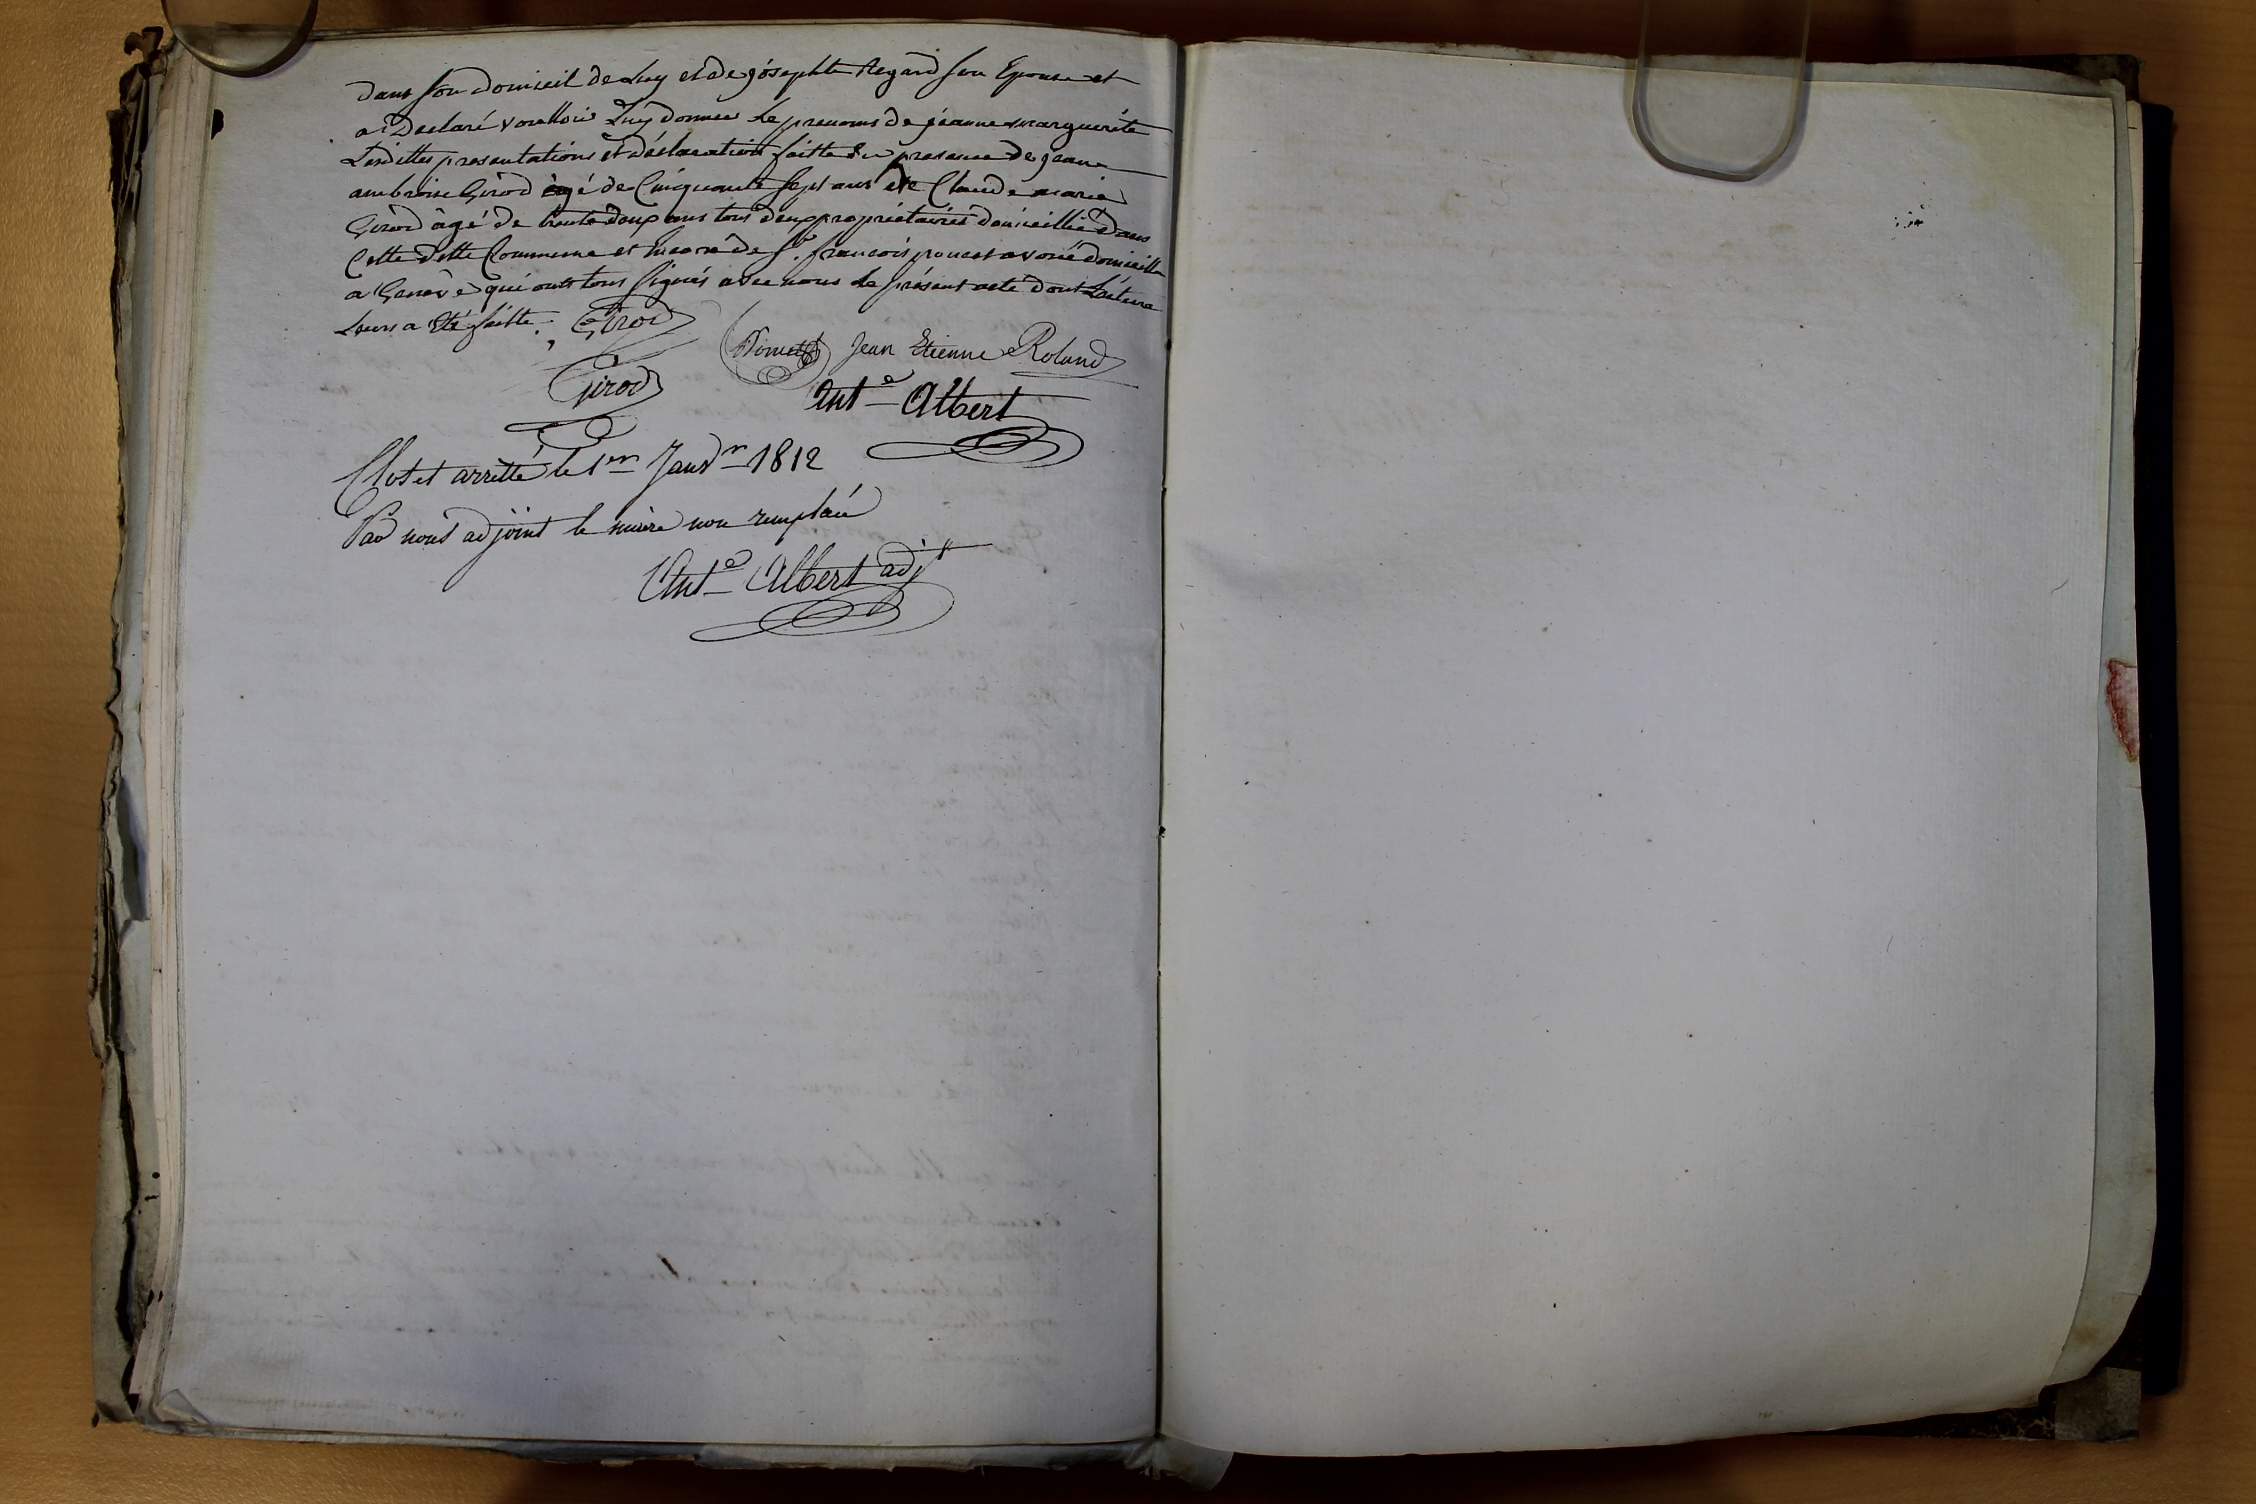 dans son domicil de Luy et de joséphte Regard son Epouse et
a Declaré voulloir Luy donner Le prenoms de jéanne marguerite
Lesdittes presentations et déclaration faitte En presence de jean
ambroise Girod âgé de Cinquante sept ans et de Claude marie
Girod âgé de trente deux ans tous deux propriétaires domicillié dans
Cette ditte Commune et Encore de Sr. francois pouest avoué domicillé
a Genève qui onts tous signés avec nous le présent acte dont Lécture
Leurs a été faitte.
Girod
Jean Etienne Roland
Girod
Ante Albert
Clos et arretté le 1er Janvr 1812
Par nous adjoint le maire non remplacé
Ante Albert adjt